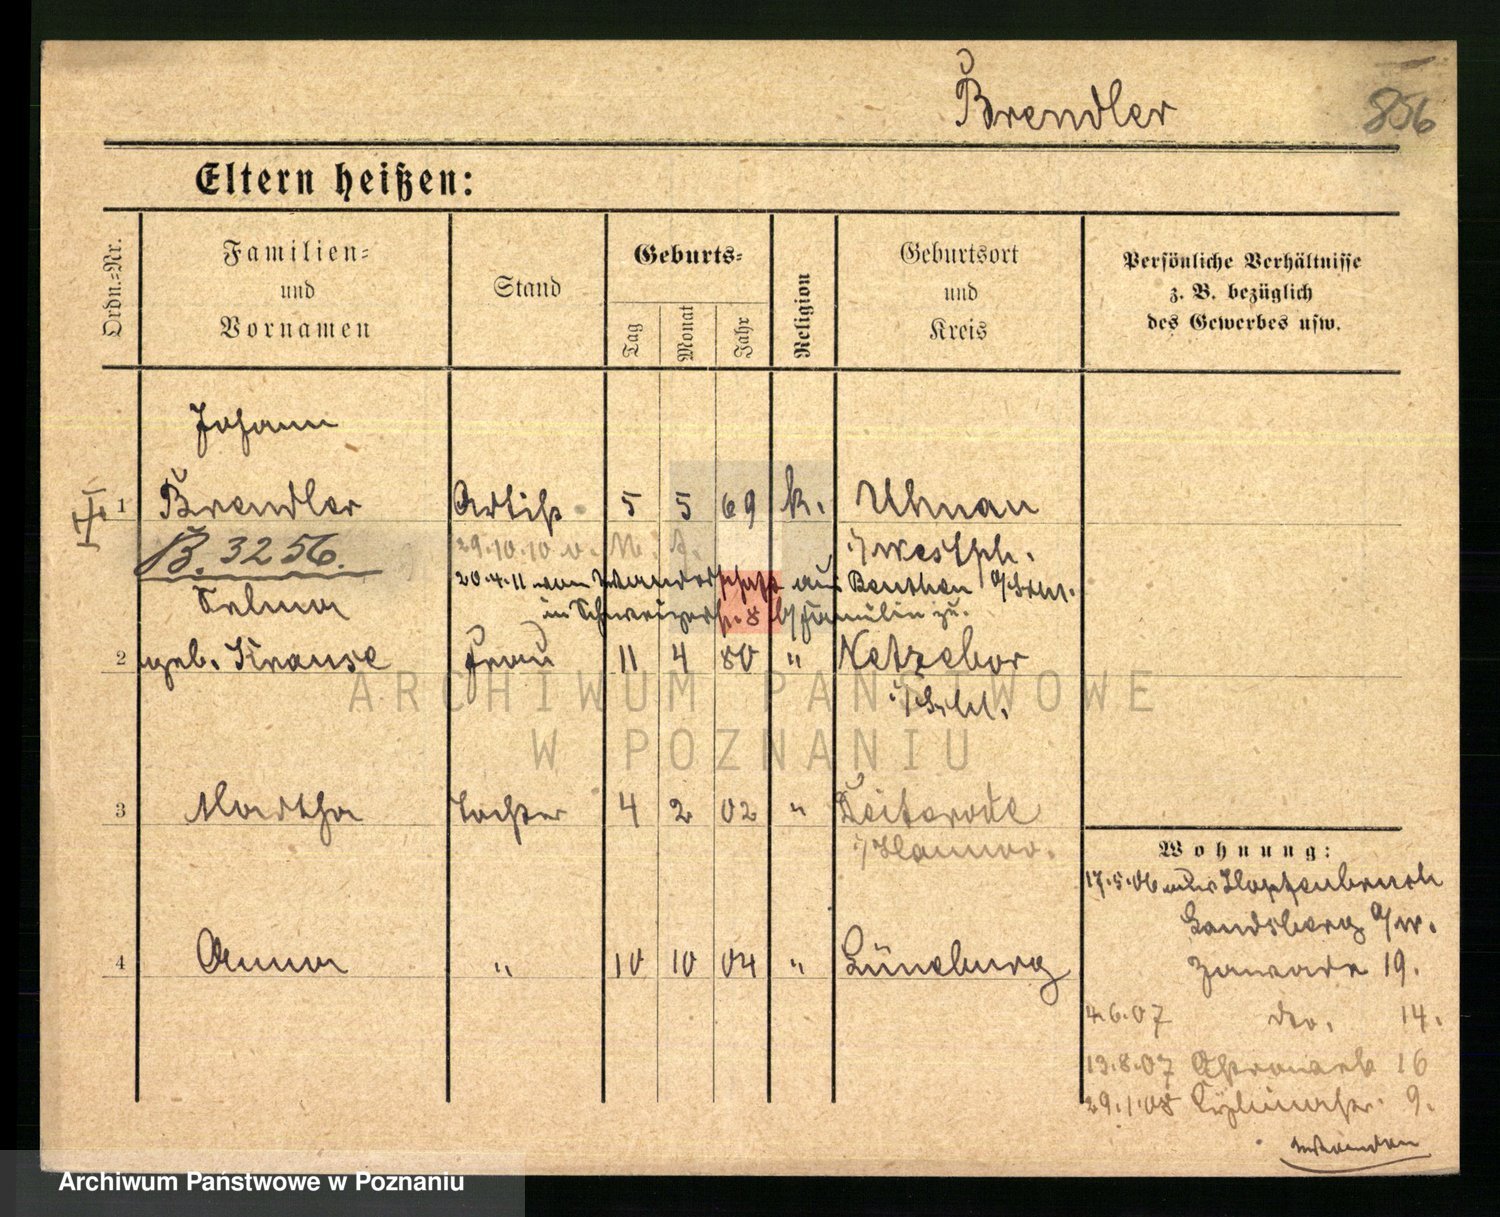 Brendler
856
Eltern heißen:
Ordn.-Nr.
Familien-
und
Vornamen
Stand
Geburts-
Tag
Monat
Jahr
Religion
Geburtsort
und
Kreis
Persönliche Verhältnisse
z. B. bezüglich
des Gewerbes usw.
Johann
1 Brendler Artist 5 5 69 k. Uhnau
B. 3256. 29.10.10 v. A. i/Westph.
20.4.11 von Wanderschaft aus Beuthen O/Schl.
Selma in 8 b/Familie zu.
2 geb. Krause Frau 11 4 80 " Netzebor
i/Schl.
3 Martha Tochter 4 2 02 " Deiterode
i/Hannov.
Wohnung:
17.5.06 Hopfenbruch
Landsberg a/W.
4 Anna " 10 10 04 " Lüneburg
Zawade 19.
4.6.07 do. 14.
13.8.07 Ostrowek 16
29.1.08 9.
ARCHIWUM PAŃSTWOWE
W POZNANIU
Archiwum Państwowe w Poznaniu